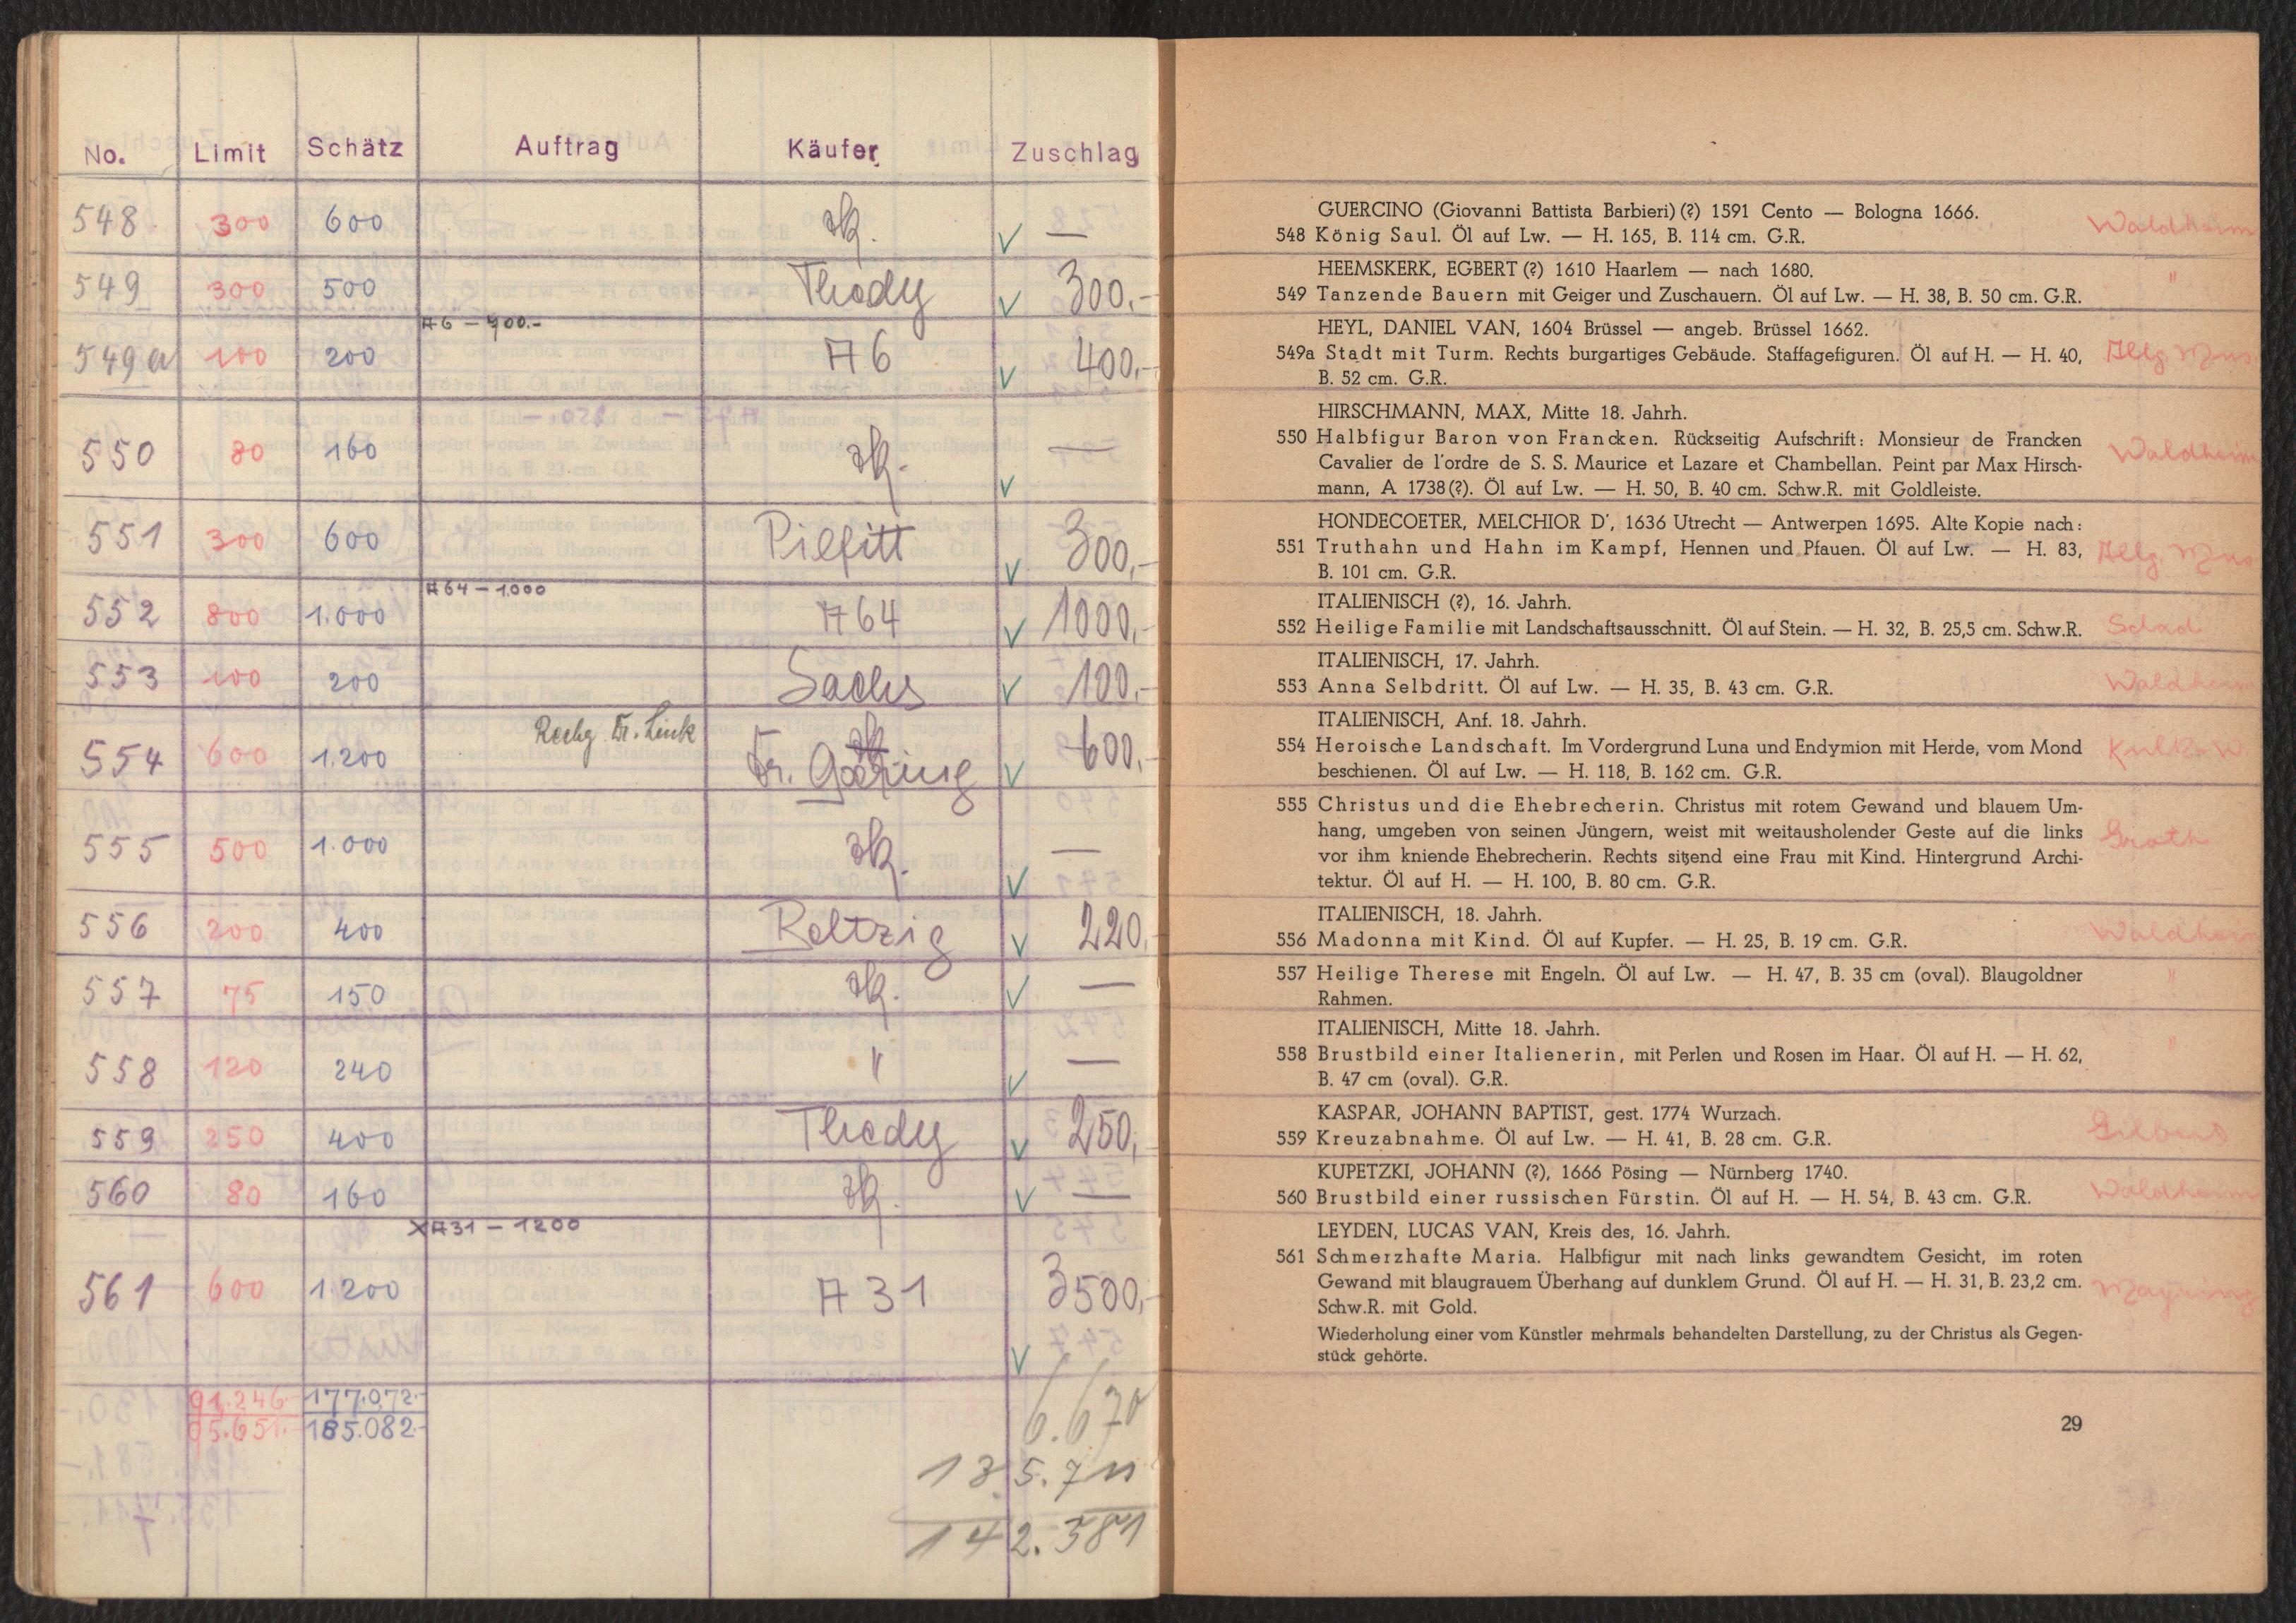 No. Limit Schätz Auftrag Käufer Zuschlag
548 300 600 zk. —
549 300 500 Thody 300,-
A6 – 400.-
549a 100 200 A6 400,-
550 80 160 zk. —
551 300 600 300,-
A64 – 1.000
552 800 1.000 A64 1000,-
553 100 200 Sachs 100,-
Rechg Dr. Link
554 600 1.200 Dr. Göring 600,-
555 500 1.000 zk. —
556 200 400 Reltzig 220,-
557 75 150 zk. —
558 120 240 " —
559 250 400 Thody 250,-
560 80 160 zk. —
XA31 – 1200
561 600 1.200 A 31 3500,-
91.246.- 177.072.- 6.670
95.651.- 185.082.-
135.711
142.381
GUERCINO (Giovanni Battista Barbieri) (?) 1591 Cento — Bologna 1666.
548 König Saul. Öl auf Lw. — H. 165, B. 114 cm. G.R. Waldheim
HEEMSKERK, EGBERT (?) 1610 Haarlem — nach 1680.
549 Tanzende Bauern mit Geiger und Zuschauern. Öl auf Lw. — H. 38, B. 50 cm. G.R. "
HEYL, DANIEL VAN, 1604 Brüssel — angeb. Brüssel 1662.
549a Stadt mit Turm. Rechts burgartiges Gebäude. Staffagefiguren. Öl auf H. — H. 40, Allg. Mus.
B. 52 cm. G.R.
HIRSCHMANN, MAX, Mitte 18. Jahrh.
550 Halbfigur Baron von Francken. Rückseitig Aufschrift: Monsieur de Francken Waldheim
Cavalier de l'ordre de S. S. Maurice et Lazare et Chambellan. Peint par Max Hirsch-
mann, A 1738 (?). Öl auf Lw. — H. 50, B. 40 cm. Schw.R. mit Goldleiste.
HONDECOETER, MELCHIOR D', 1636 Utrecht — Antwerpen 1695. Alte Kopie nach:
551 Truthahn und Hahn im Kampf, Hennen und Pfauen. Öl auf Lw. — H. 83, Allg. Mus
B. 101 cm. G.R.
ITALIENISCH (?), 16. Jahrh.
552 Heilige Familie mit Landschaftsausschnitt. Öl auf Stein. — H. 32, B. 25,5 cm. Schw.R.
ITALIENISCH, 17. Jahrh.
553 Anna Selbdritt. Öl auf Lw. — H. 35, B. 43 cm. G.R. Waldheim
ITALIENISCH, Anf. 18. Jahrh.
554 Heroische Landschaft. Im Vordergrund Luna und Endymion mit Herde, vom Mond
beschienen. Öl auf Lw. — H. 118, B. 162 cm. G.R.
555 Christus und die Ehebrecherin. Christus mit rotem Gewand und blauem Um-
hang, umgeben von seinen Jüngern, weist mit weitausholender Geste auf die links Groth
vor ihm kniende Ehebrecherin. Rechts sitzend eine Frau mit Kind. Hintergrund Archi-
tektur. Öl auf H. — H. 100, B. 80 cm. G.R.
ITALIENISCH, 18. Jahrh.
556 Madonna mit Kind. Öl auf Kupfer. — H. 25, B. 19 cm. G.R. Waldheim
557 Heilige Therese mit Engeln. Öl auf Lw. — H. 47, B. 35 cm (oval). Blaugoldner "
Rahmen.
ITALIENISCH, Mitte 18. Jahrh.
558 Brustbild einer Italienerin, mit Perlen und Rosen im Haar. Öl auf H. — H. 62, "
B. 47 cm (oval). G.R.
KASPAR, JOHANN BAPTIST, gest. 1774 Wurzach.
559 Kreuzabnahme. Öl auf Lw. — H. 41, B. 28 cm. G.R.
KUPETZKI, JOHANN (?), 1666 Pösing — Nürnberg 1740.
560 Brustbild einer russischen Fürstin. Öl auf H. — H. 54, B. 43 cm. G.R. Waldheim
LEYDEN, LUCAS VAN, Kreis des, 16. Jahrh.
561 Schmerzhafte Maria. Halbfigur mit nach links gewandtem Gesicht, im roten
Gewand mit blaugrauem Überhang auf dunklem Grund. Öl auf H. — H. 31, B. 23,2 cm. Mayring
Schw.R. mit Gold.
Wiederholung einer vom Künstler mehrmals behandelten Darstellung, zu der Christus als Gegen-
stück gehörte.
29